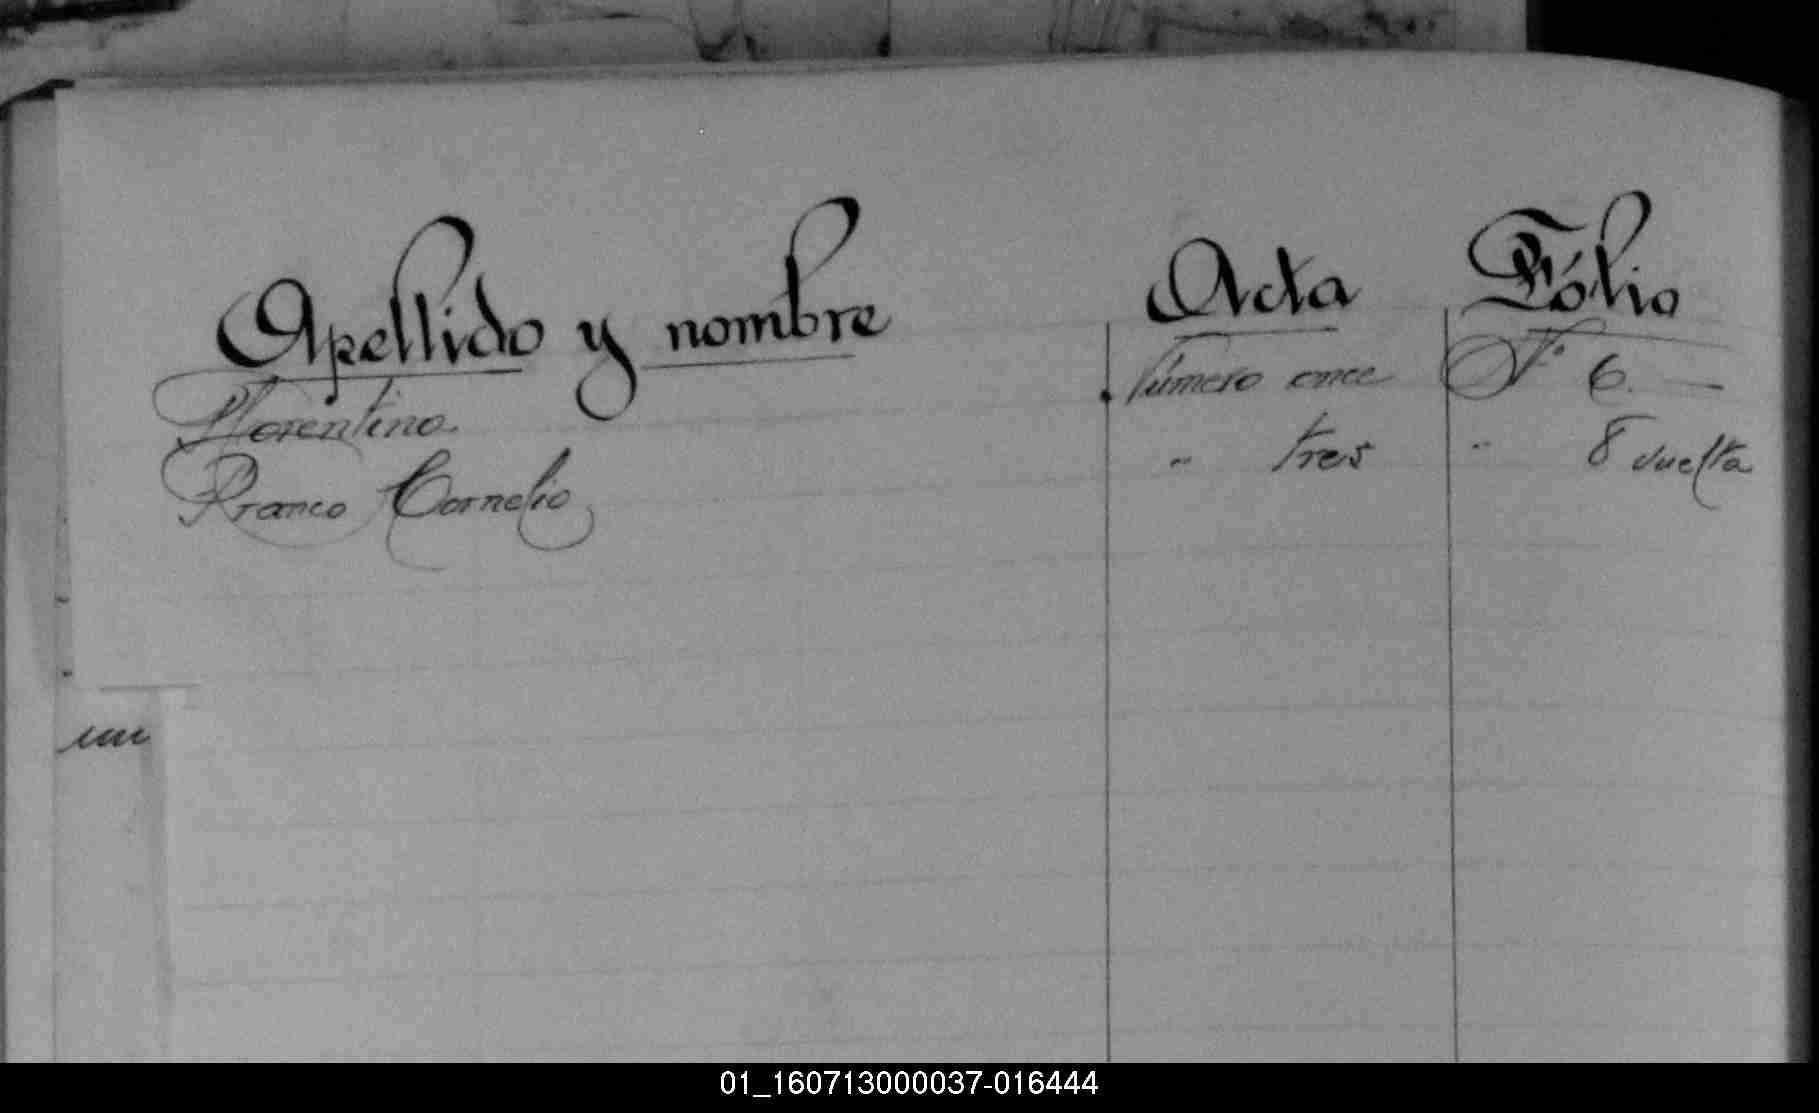 Apellido y nombre Acta Fólio
Florentino Número once Fº 6. —
Franco Cornelio " tres " 8 vuelta
un
01_160713000037-016444